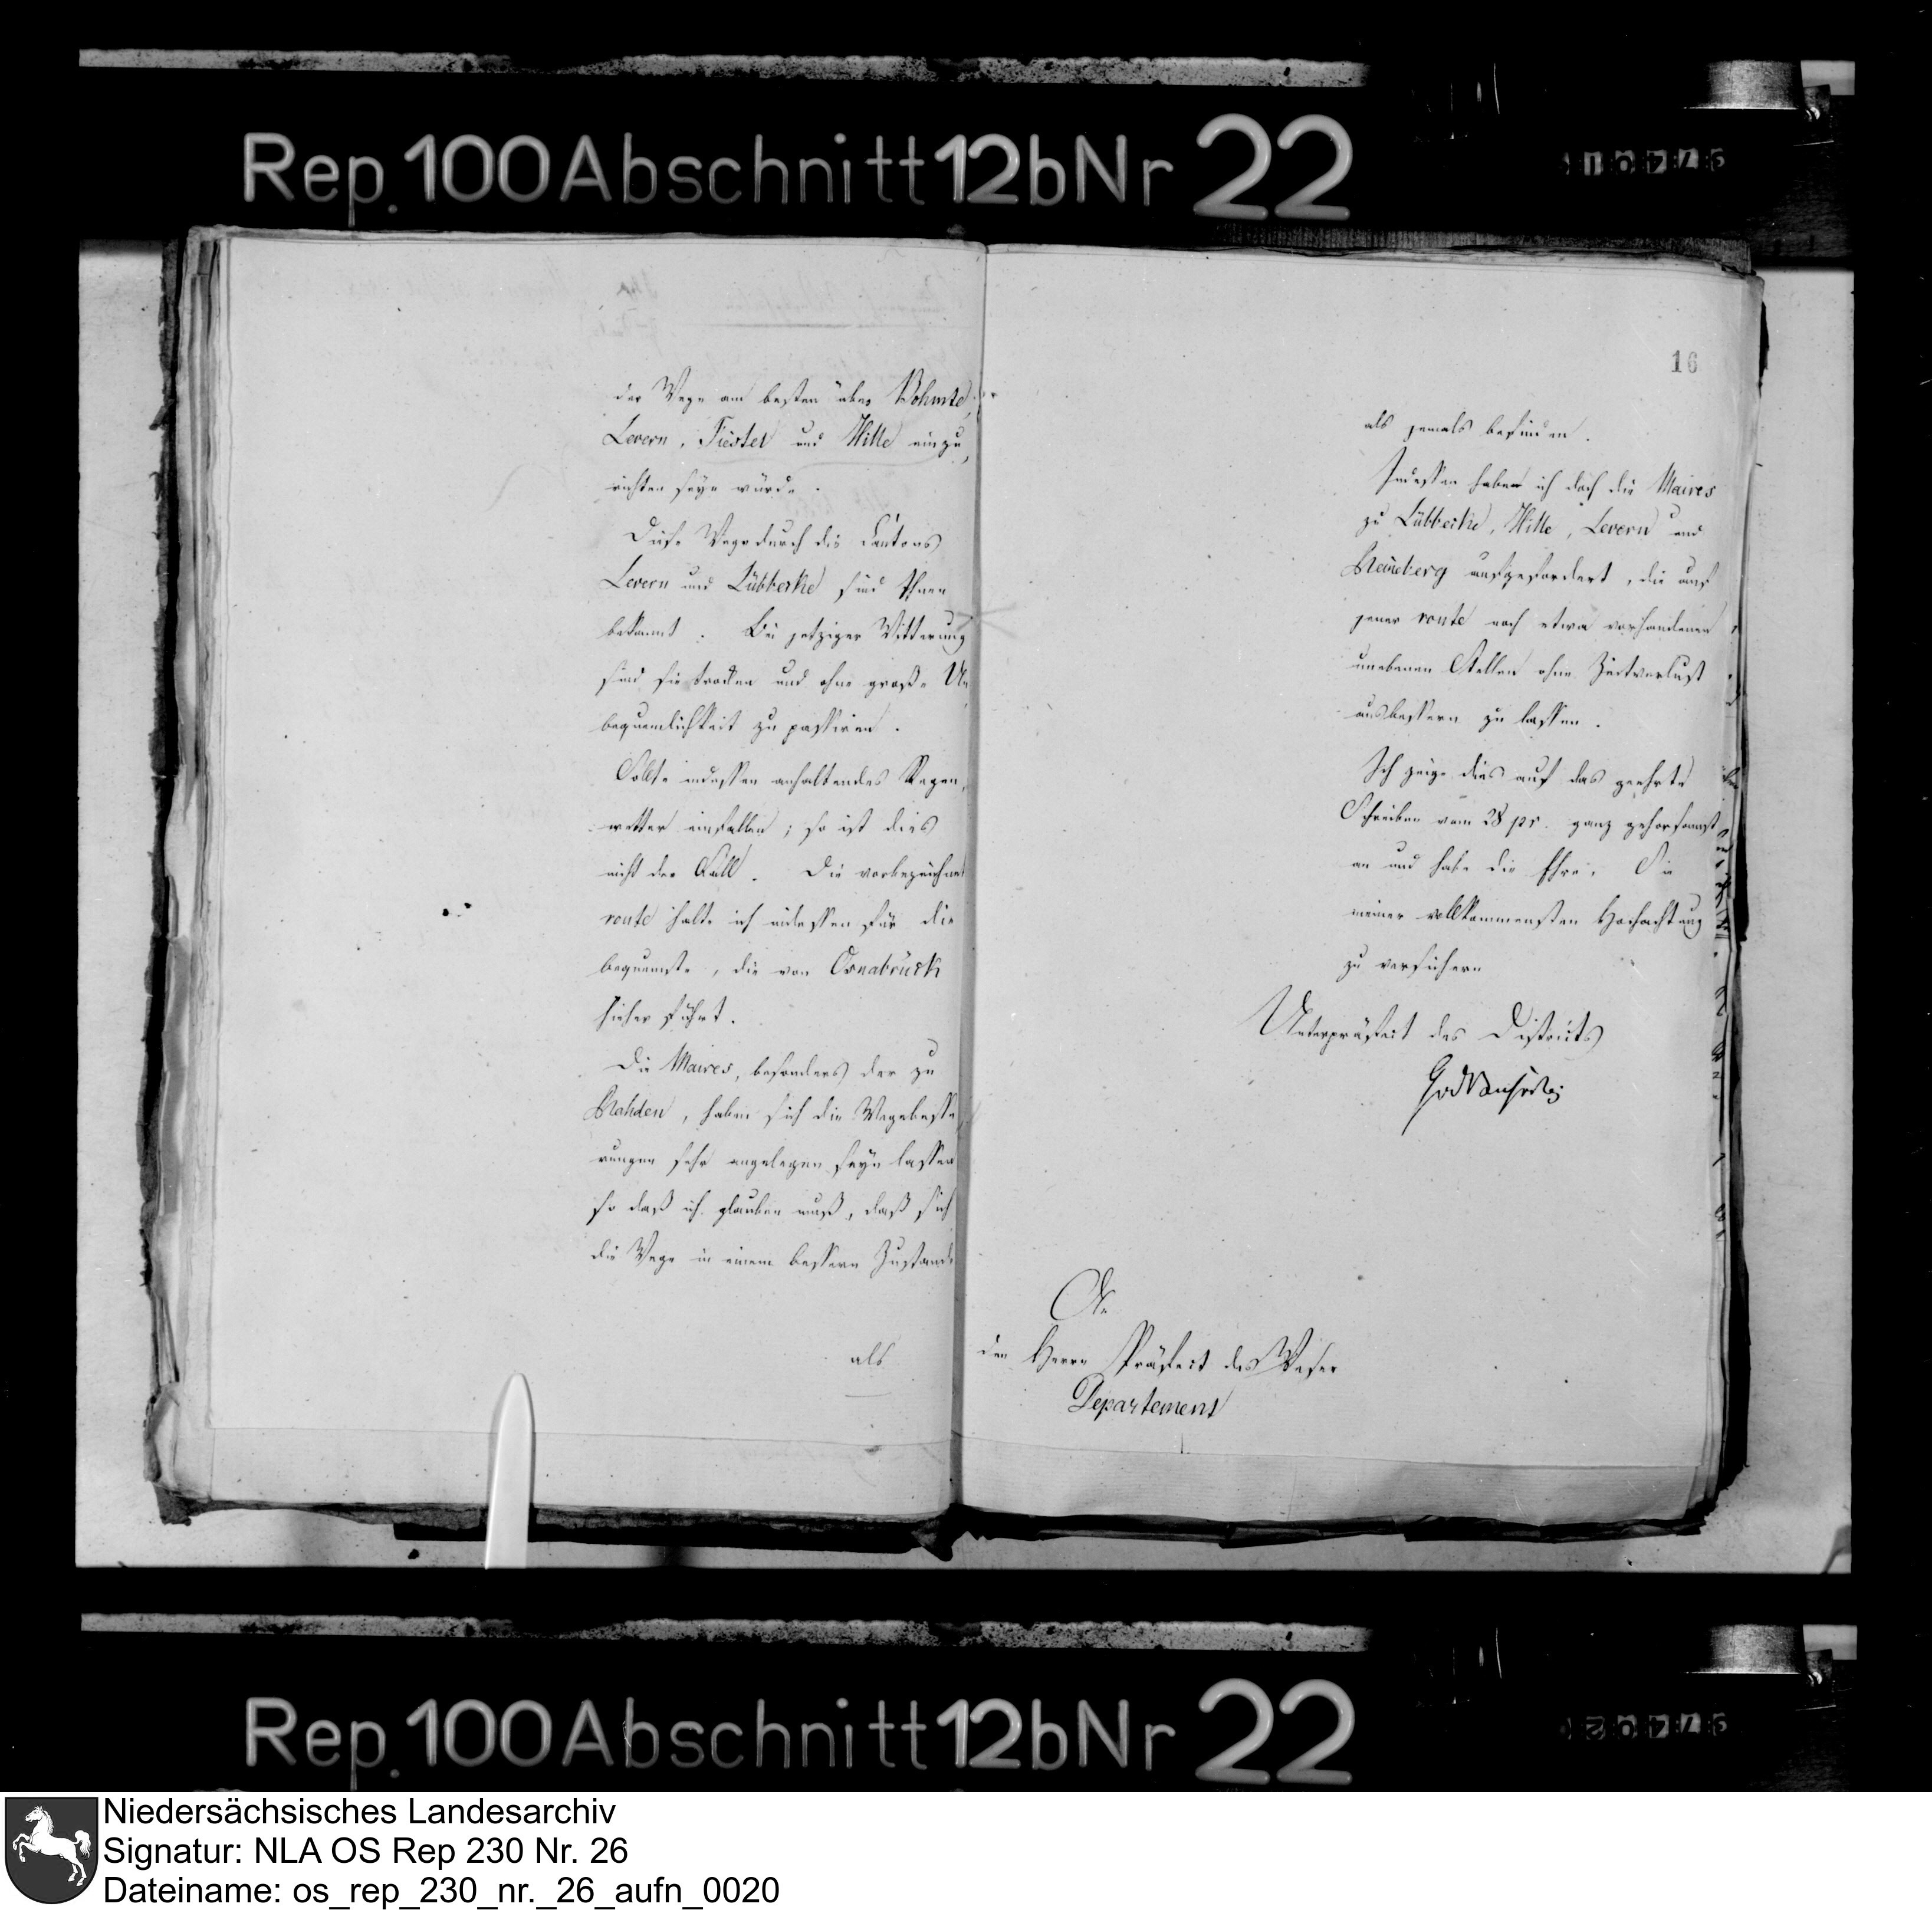 Rep. 100 Abschnitt 12b Nr 22
der Wege am besten über Bohmte,
Levern, Fiestel und Hille einzu,
richten seyn würde.
Diese Wege durch die Cantons
Levern und Lübbecke sind Ihnen
bekannt. Bei jetziger Witterung
sind sie trocken und ohne große Un
bequemlichkeit zu passiren.
Sollte indessen anhaltendes Regen,
wetter einfallen; so ist dies
nicht der Fall. Die vorbezeichnet
route halte ich indessen für die
bequemste, die von Osnabrück
hieher führt.
Die Maires, besonders der zu
Rahden, haben sich die Wegebesse
rungen sehr angelegen seyn lassen
so daß ich glauben muß, daß sich
die Wege in einem bessern Zustande
als
16
als jemals befinden.
Indessen habe ich doch die Maires
zu Lübbecke, Hille, Levern und
aufgefordert, die auf
jener route noch etwa vorhandenen
unebenen Stellen ohne Zeitverlust
ausbessern zu lassen.
Ich zeige dies auf das geehrte
Schreiben vom 28 pr. ganz gehorsamst
an und habe die Ehre, Sie
meiner vollkommensten Hochachtung
zu versichern
Unterpräfect des Districts
An
den Herrn Präfect des Weser
Departement
Rep. 100 Abschnitt 12b Nr 22
Niedersächsisches Landesarchiv
Signatur: NLA OS Rep 230 Nr. 26
Dateiname: os_rep_230_nr._26_aufn_0020